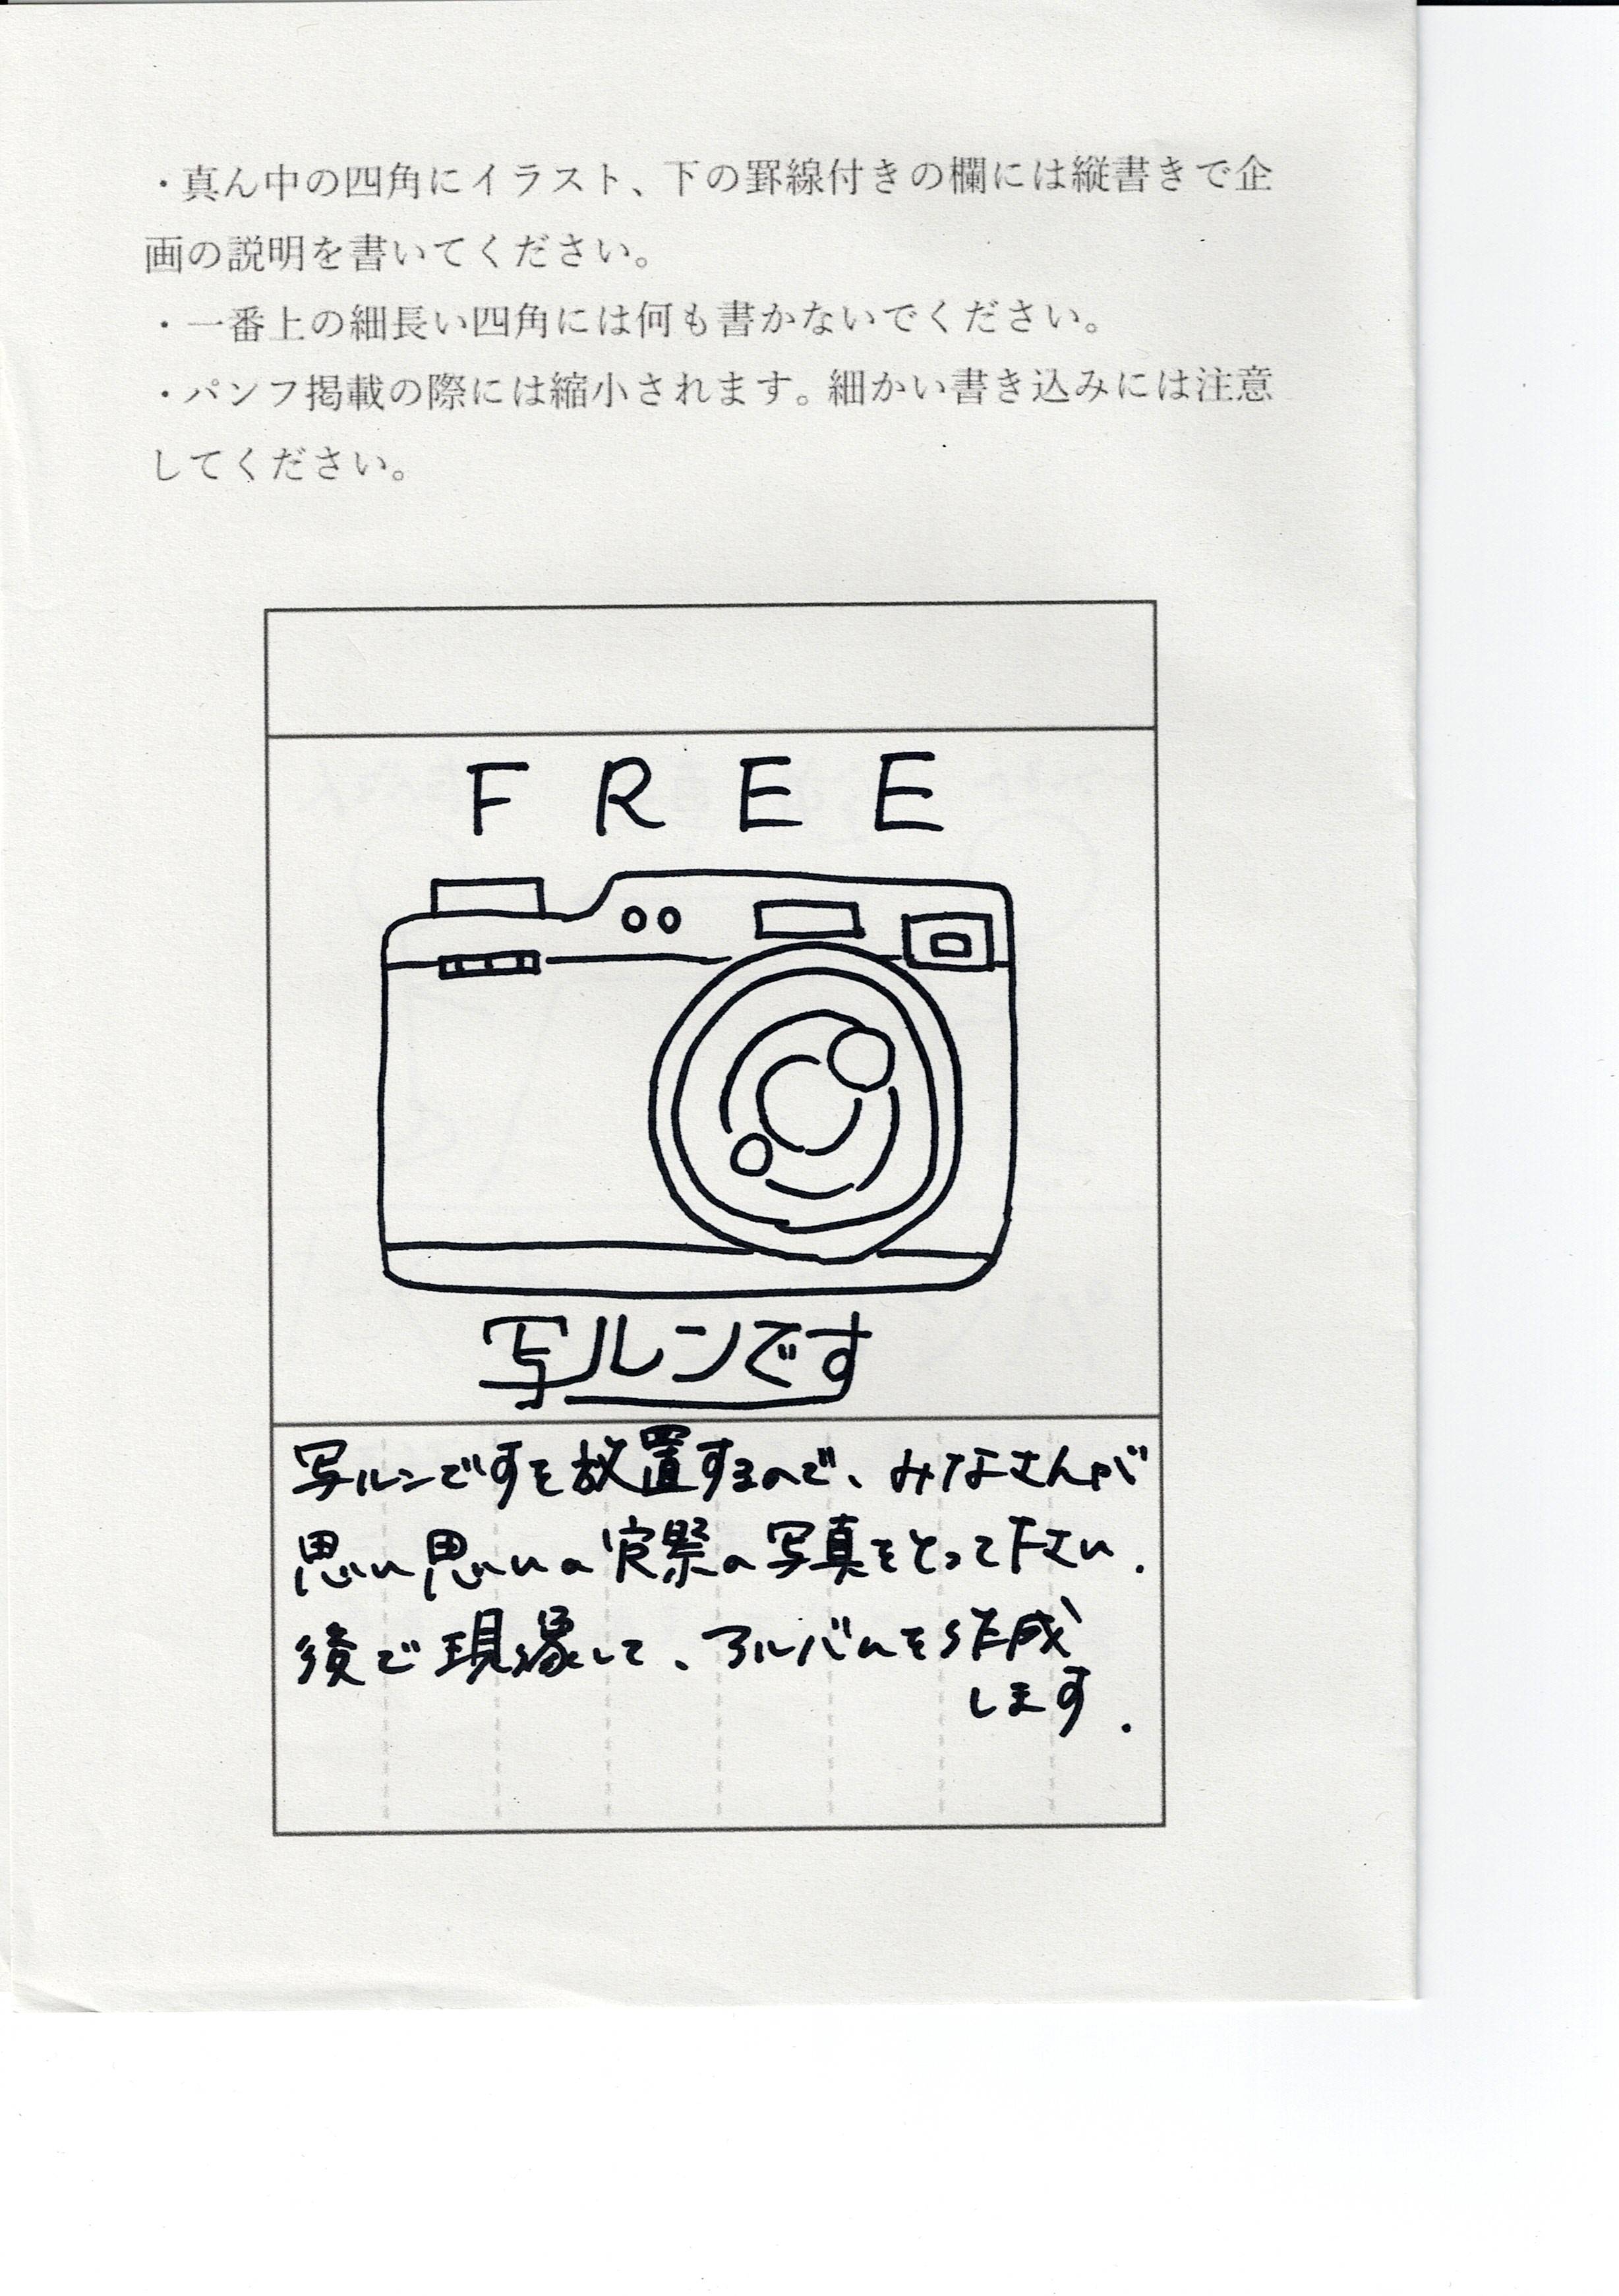 ・真ん中の四角にイラスト、下の罫線付きの欄には縦書きで企
画の説明を書いてください。
・一番上の細長い四角には何も書かないでください。
・パンフ掲載の際には縮小されます。細かい書き込みには注意
してください。
FREE
写ルンです
写ルンですを放置するので、みなさんが
思い思いの宿祭の写真をとって下さい.
後で現像して、アルバムを作成
します.